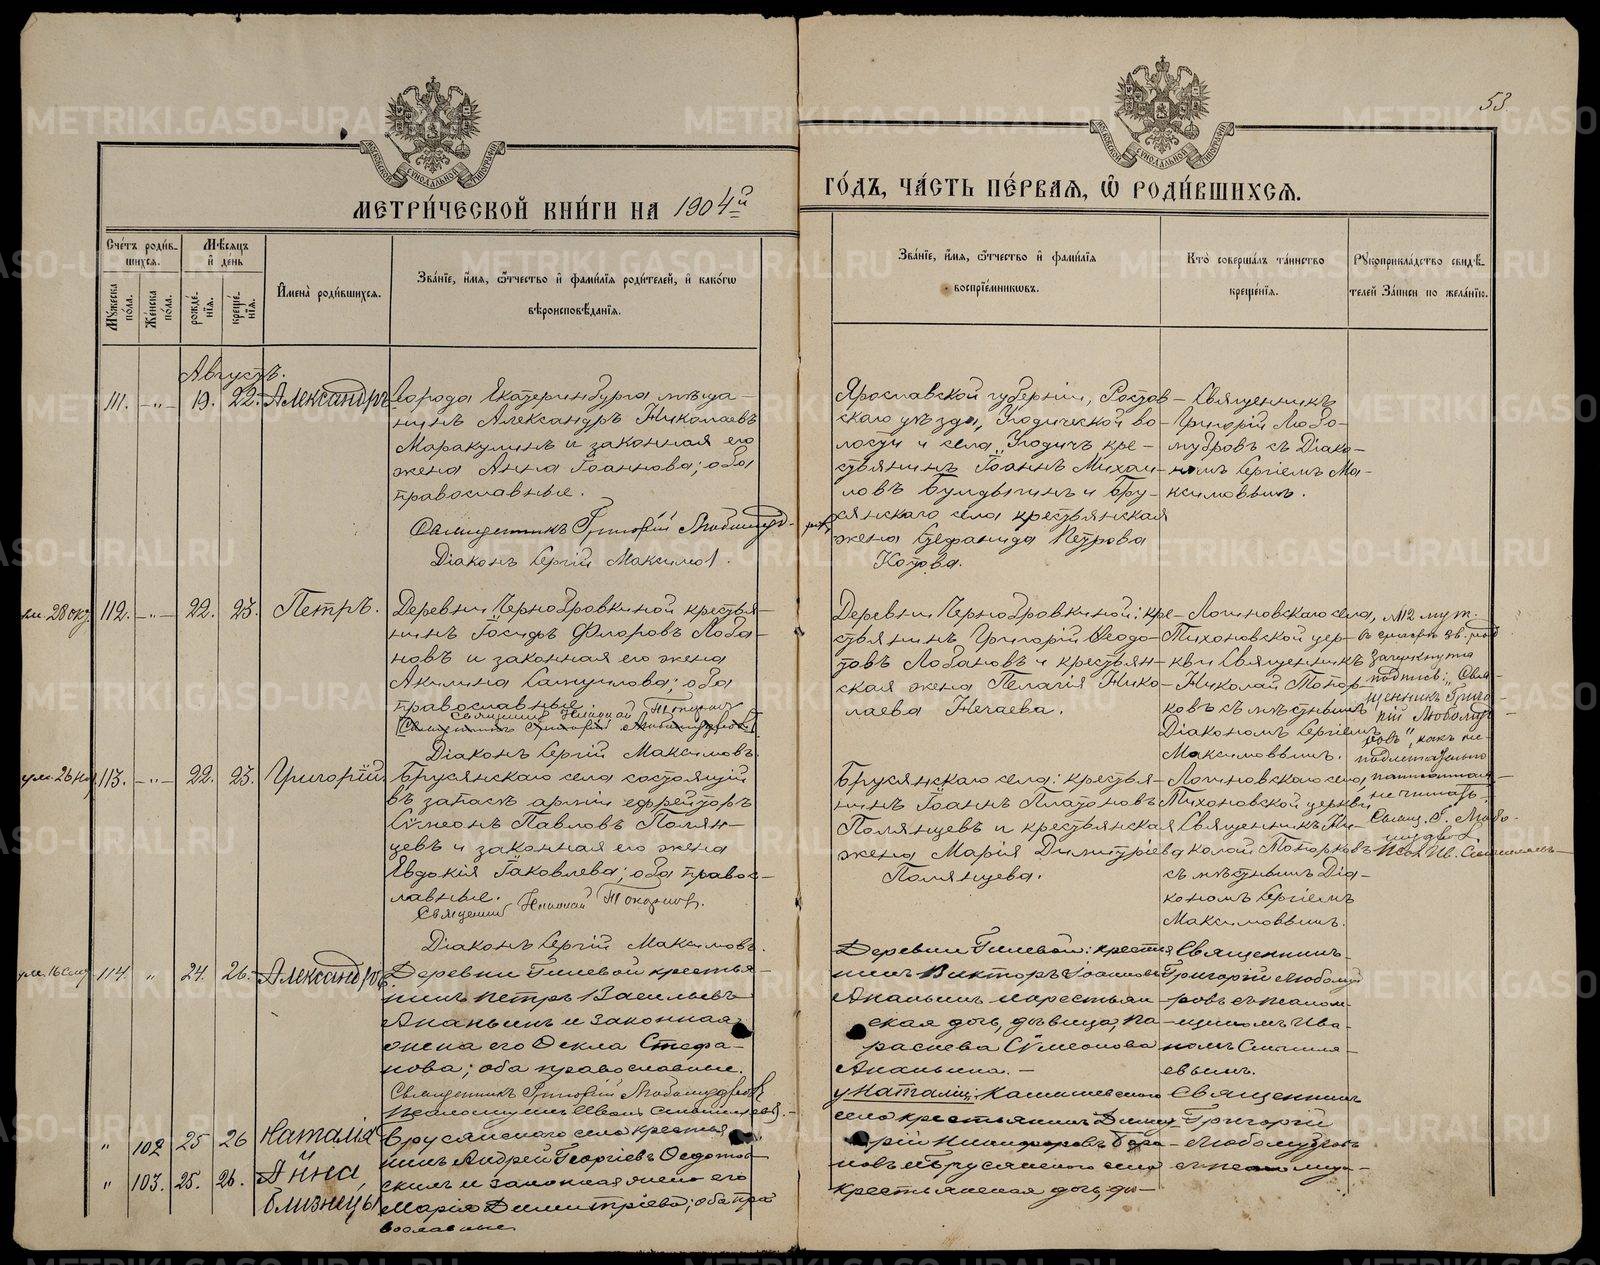 53
МЕТРИ́ЧЕСКОЙ КНИ́ГИ НА 1904й
ГО́ДЪ, ЧА́СТЬ ПЕ́РВАѦ, Ѡ҆ РОДИ́ВШИХСѦ.
Сче́тъ роди́в-
шихсѧ.
Мꙋ́жеска по́ла.
Же́нска по́ла.
Мѣ́сѧцъ и҆ де́нь
рожде́нїѧ.
креще́нїѧ.
И҆мена̀ роди́вшихсѧ.
Зва́нїе, и҆́мѧ, ѻ҆́тчество и҆ фами́лїѧ роди́телей, и҆ како́гѡ
вѣроисповѣ́данїѧ.
Зва́нїе, и҆́мѧ, ѻ҆́тчество и҆ фами́лїѧ
воспрїе́мникѡвъ.
Кто̀ соверша́лъ та́инство
креще́нїѧ.
Рꙋкоприкла́дство свидѣ́-
телей за́писи по жела́нїю.
Августъ.
111. - „ - 19. 22. Александръ
Города Екатеринбурга мѣща-
нинъ Александръ Николаевъ
Маракулинъ и законная его
жена Анна Іоаннова; оба
православные.
Священникъ Григорій Любомудровъ
Діаконъ Сергій Максимов.
Ярославской губерніи, Ростов-
скаго уѣзда, Угодической во-
лости и села „Угодичъ кре-
стьянинъ Іоаннъ Михаи-
ловъ Булдыгинъ и Бру-
сянскаго села крестьянская
жена Стефанида Петрова
Котова.
Священникъ
Григорій Любо-
мудровъ съ Діако-
номъ Сергіемъ Ма-
ксимовымъ.
112. - „ - 22. 23. Петръ.
Деревни Чернобровкиной крестья-
нинъ Іосифъ Флоровъ Лоба-
новъ и законная его жена
Акилина Самуилова; оба
православные.
Священник Николай Топорков
Священникъ Григорій Любомудровъ
Діаконъ Сергій Максимовъ.
Деревни Чернобровкиной: кре-
стьянинъ Григорій Ѳеодо-
товъ Лобановъ и крестьян-
ская жена Пелагія Нико-
лаева Нечаева.
Логиновскаго села,
Тихоновской цер-
кви Священникъ
Николай Топор-
ковъ съ мѣстнымъ
Діакономъ Сергіемъ
Максимовымъ.
№ 112 муж.
Зачеркнута
подпись: „Свя-
щенникъ Григо-
рій Любомуд-
ровъ“, какъ не-
не читать.
Свящ. Г. Любо-
мудров
Псал. Ив.
113. - „ - 22. 23. Григорій.
Брусянскаго села состоящій
въ запасѣ арміи ефрейторъ
Сѵмеонъ Павловъ Полян-
цевъ и законная его жена
Евдокія Іаковлева; оба право-
славные.
Священник Николай Топорков.
Діаконъ Сергій Максимовъ.
Брусянскаго села: крестья-
нинъ Іоаннъ Платоновъ
Полянцевъ и крестьянская
жена Марія Димитріева
Полянцева.
Логиновскаго села,
Тихоновской церкви
Священникъ Ни-
колай Топорковъ
съ мѣстнымъ Діа-
кономъ Сергіемъ
Максимовымъ.
114. „ 24. 26. Александръ
Деревни Гилевой крестья-
нинъ Петръ Васильевъ
Ананьинъ и законная
жена его Ѳекла Стефа-
нова; оба православные.
Священникъ Григорій Любомудровъ
Псаломщикъ Иванъ
Деревни Гилевой: крестья-
нинъ Викторъ Іоанновъ
Ананьинъ и крестьян-
ская дочь, дѣвица, Па-
раскева Сѵмеонова
Ананьина. —
Священникъ
Григорій Любомуд-
ровъ съ псалом-
щикомъ Ива-
номъ
„ 102 25 26 Наталія
„ 103. 25. 26. Анна,
близнецы
Брусянскаго села крестья-
нинъ Андрей Георгіевъ Ѳедотов-
скихъ и законная жена его
Марія Димитріева; оба пра-
вославные
у Наталіи: Камышевскаго
села крестьянинъ Дмит-
рій
новъ и Брусянскаго села
крестьянская дочь, дѣ-
Священникъ
Григорій
Любомудровъ
съ псаломщи-